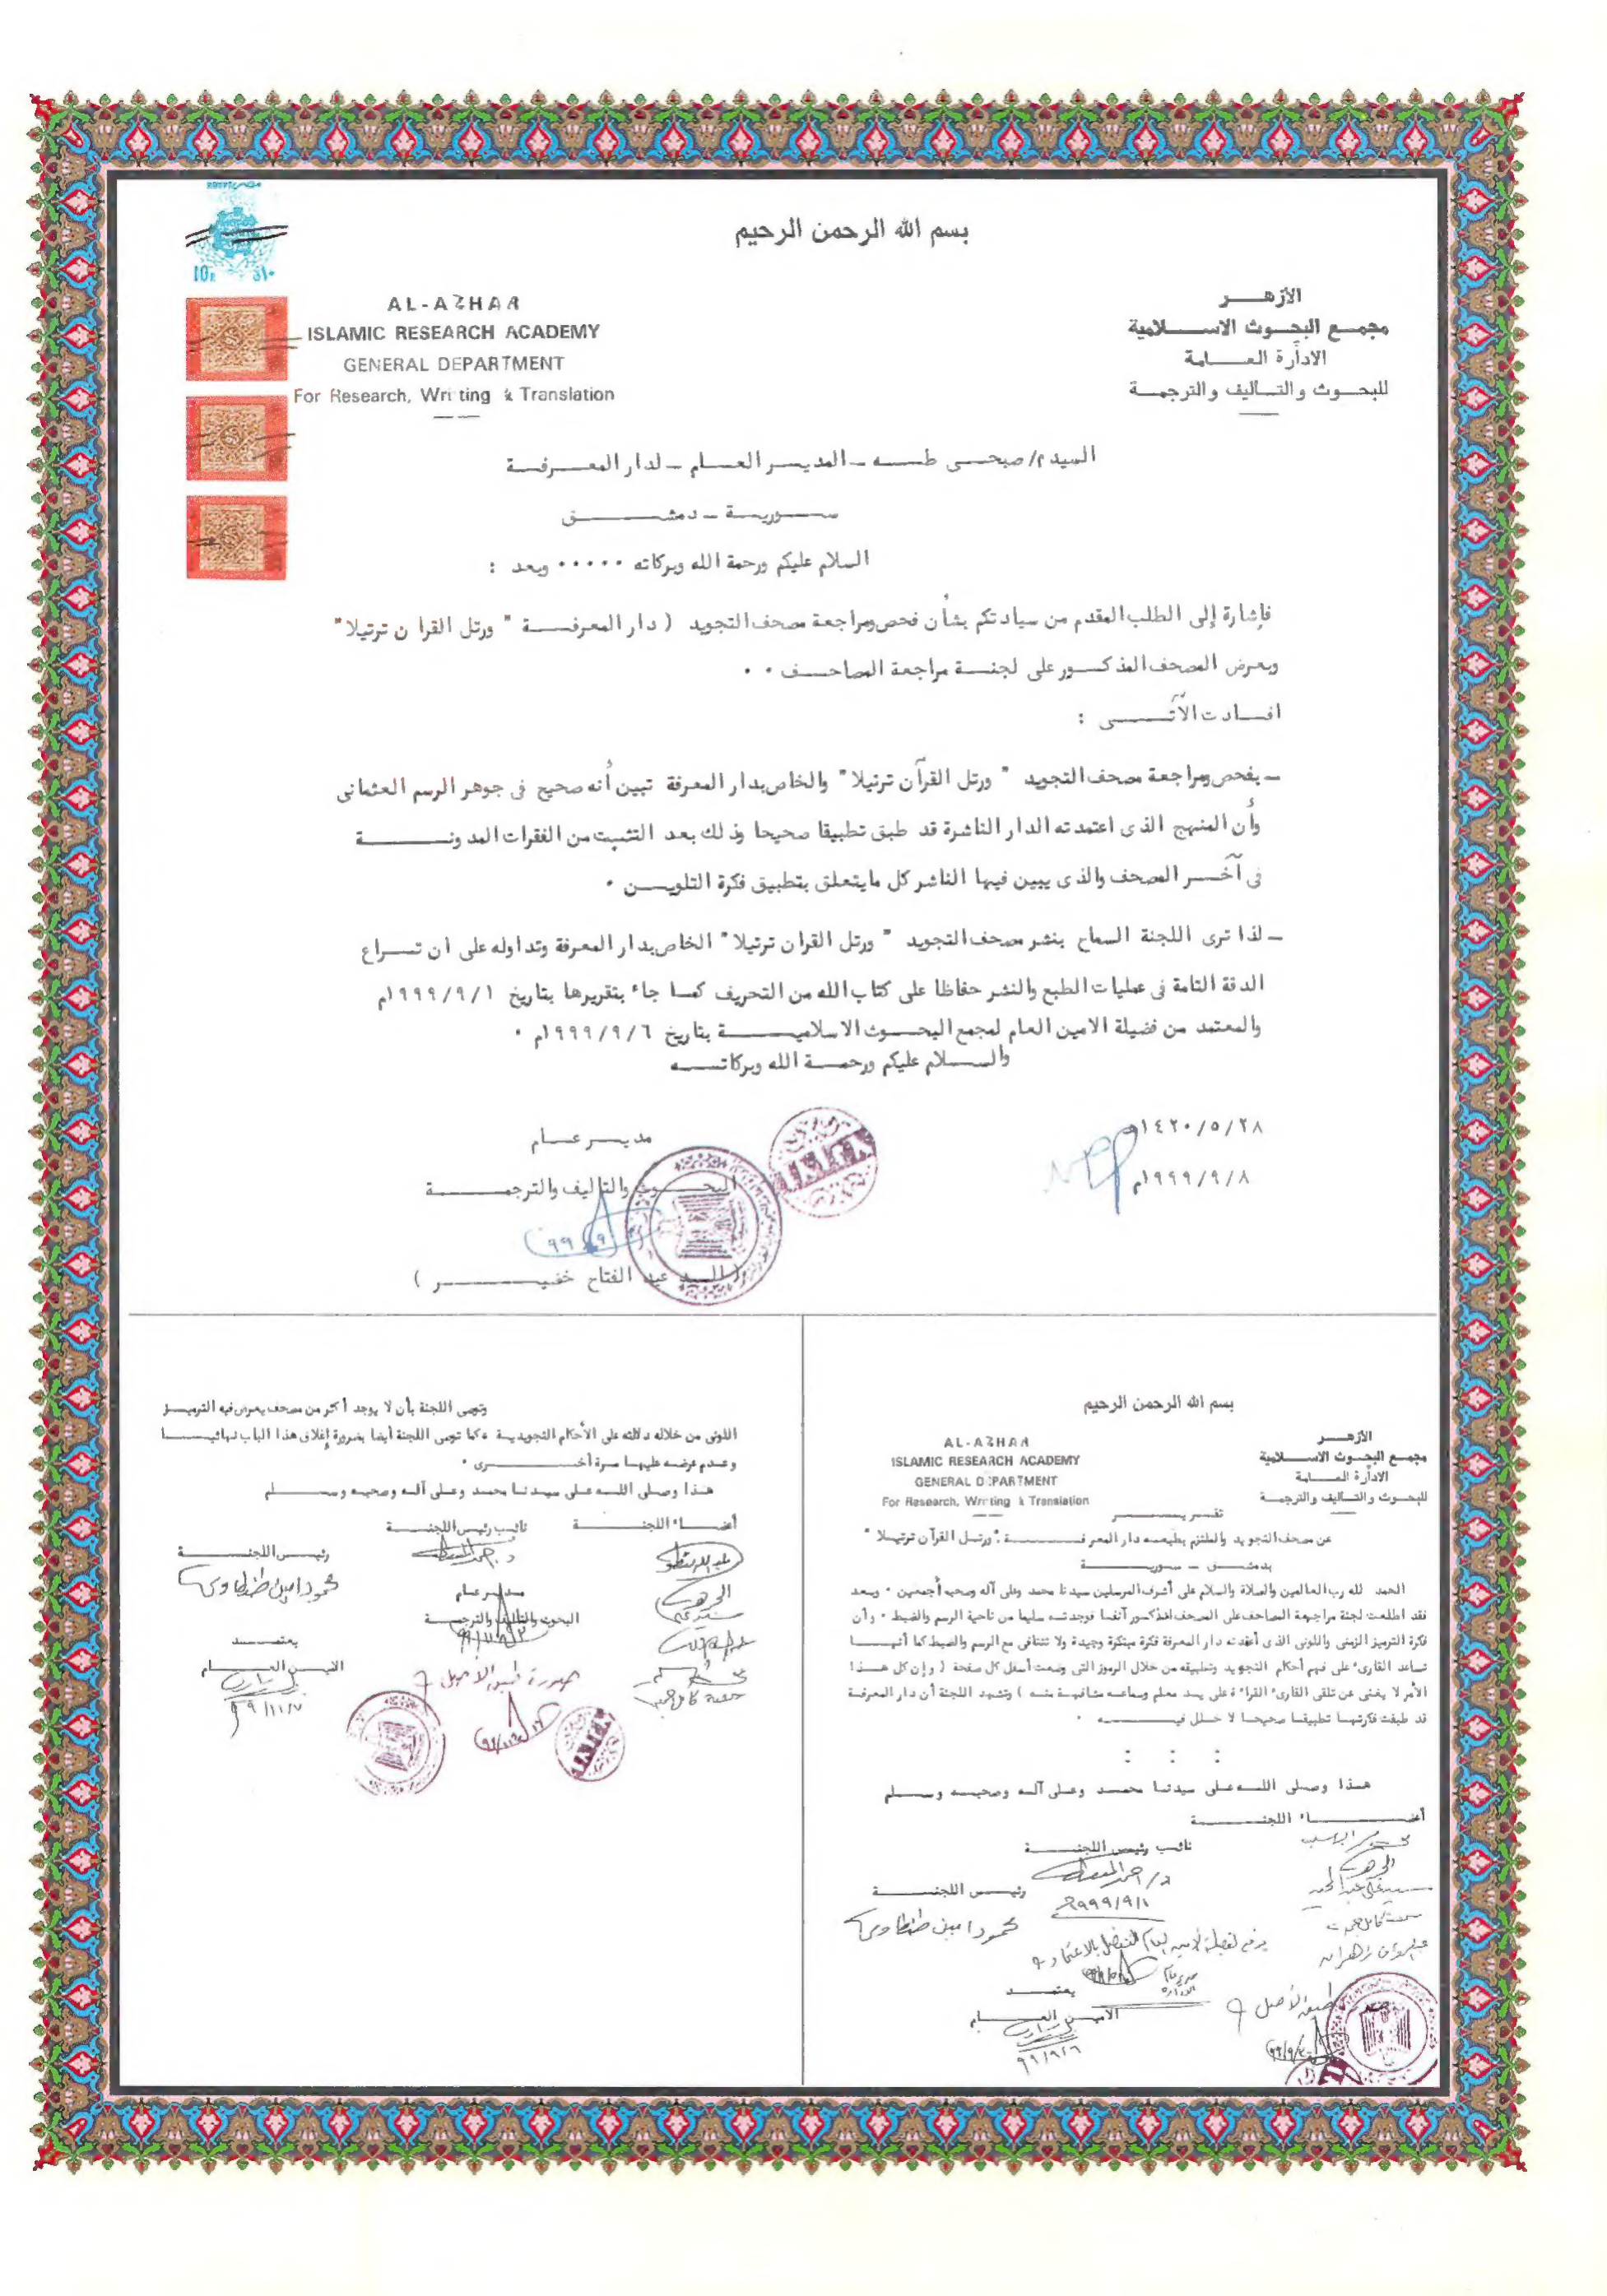 بسم الله الرحمن الرحيم
الأزهـــر
مجمع البحوث الاسلامية
الادارة العامة
للبحوث والتأليف والترجمة
AL-AZHAR
ISLAMIC RESEARCH ACADEMY
GENERAL DEPARTMENT
For Research, Writing & Translation
السيد م/ صبحى طه - المدير العام - لدار المعرفة
سورية - دمشق
السلام عليكم ورحمة الله وبركاته ..... وبعد :
فإشارة إلى الطلب المقدم من سيادتكم بشأن فحص ومراجعة مصحف التجويد ( دار المعرفة " ورتل القرا ن ترتيلا "
وبعرض المصحف المذكور على لجنة مراجعة المصاحف ..
افادت الآتى :
- بفحص ومراجعة مصحف التجويد " ورتل القرآن ترتيلا " والخاص بدار المعرفة تبين أنه صحيح فى جوهر الرسم العثمانى
وأن المنهج الذى اعتمدته الدار الناشرة قد طبق تطبيقا صحيحا وذلك بعد التثبت من الفقرات المدونة
فى آخر المصحف والذى يبين فيها الناشر كل مايتعلق بتطبيق فكرة التلوين .
- لذا ترى اللجنة السماح بنشر مصحف التجويد " ورتل القران ترتيلا " الخاص بدار المعرفة وتداوله على ان تراع
الدقة التامة فى عمليات الطبع والنشر حفاظا على كتاب الله من التحريف كما جاء بتقريرها بتاريخ ١/٩/١٩٩٩م
والمعتمد من فضيلة الامين العام لمجمع البحوث الاسلامية بتاريخ ٦/٩/١٩٩٩م .
والسلام عليكم ورحمة الله وبركاته
٢٨/٥/١٤٢٠هـ
٨/٩/١٩٩٩م
مدير عام
البحوث والتاليف والترجمة
( السيد عبد الفتاح خفير )
بسم الله الرحمن الرحيم
الأزهـــر
مجمع البحوث الاسلامية
الادارة العامة
للبحوث والتاليف والترجمة
AL-AZHAR
ISLAMIC RESEARCH ACADEMY
GENERAL DEPARTMENT
For Research, Writing & Translation
تقرير
عن مصحف التجويد والملتزم بطبعه دار المعرفة : " ورتل القرآن ترتيلا "
بدمشق - سورية
الحمد لله رب العالمين والصلاة والسلام على أشرف المرسلين سيدنا محمد وعلى آله وصحبه أجمعين . وبعد
فقد اطلعت لجنة مراجعة المصاحف على المصحف المذكور آنفا فوجدته سليما من ناحية الرسم والضبط . وأن
فكرة الترميز الزمنى واللونى الذى أعدته دار المعرفة فكرة مبتكرة وجيدة ولا تتنافى مع الرسم والضبط كما أنها
تساعد القارىء على فهم أحكام التجويد وتطبيقه من خلال الرموز التى وضعت أسفل كل صفحة ( وإن كل هذا
الأمر لا يغنى عن تلقى القارىء القراءة على يد معلم وسماعه مشافهة منه ) وتشهد اللجنة أن دار المعرفة
قد طبقت فكرتها تطبيقا صحيحا لا خلل فيه .
هذا وصلى الله على سيدنا محمد وعلى آله وصحبه وسلم
أعضاء اللجنة
نائب رئيس اللجنة
١/٩/١٩٩٩
رئيس اللجنة
محمود أمين طنطاوى
يرفع لفضيلة الأمين العام للتفضل بالاعتماد
يعتمد
الامين العام
٩٩/٩/٦
وتوصى اللجنة بأن لا يوجد أكثر من مصحف يعرض فيه الترميز
اللونى من خلاله دلالته على الأحكام التجويدية . كما توصى اللجنة أيضا بضرورة إغلاق هذا الباب نهائيا
وعدم عرضه عليها مرة أخرى .
هذا وصلى الله على سيدنا محمد وعلى آله وصحبه وسلم
أعضاء اللجنة
نائب رئيس اللجنة
رئيس اللجنة
محمود أمين طنطاوى
مدير عام
البحوث والتاليف والترجمة
يعتمد
الامين العام
صورة طبق الاصل